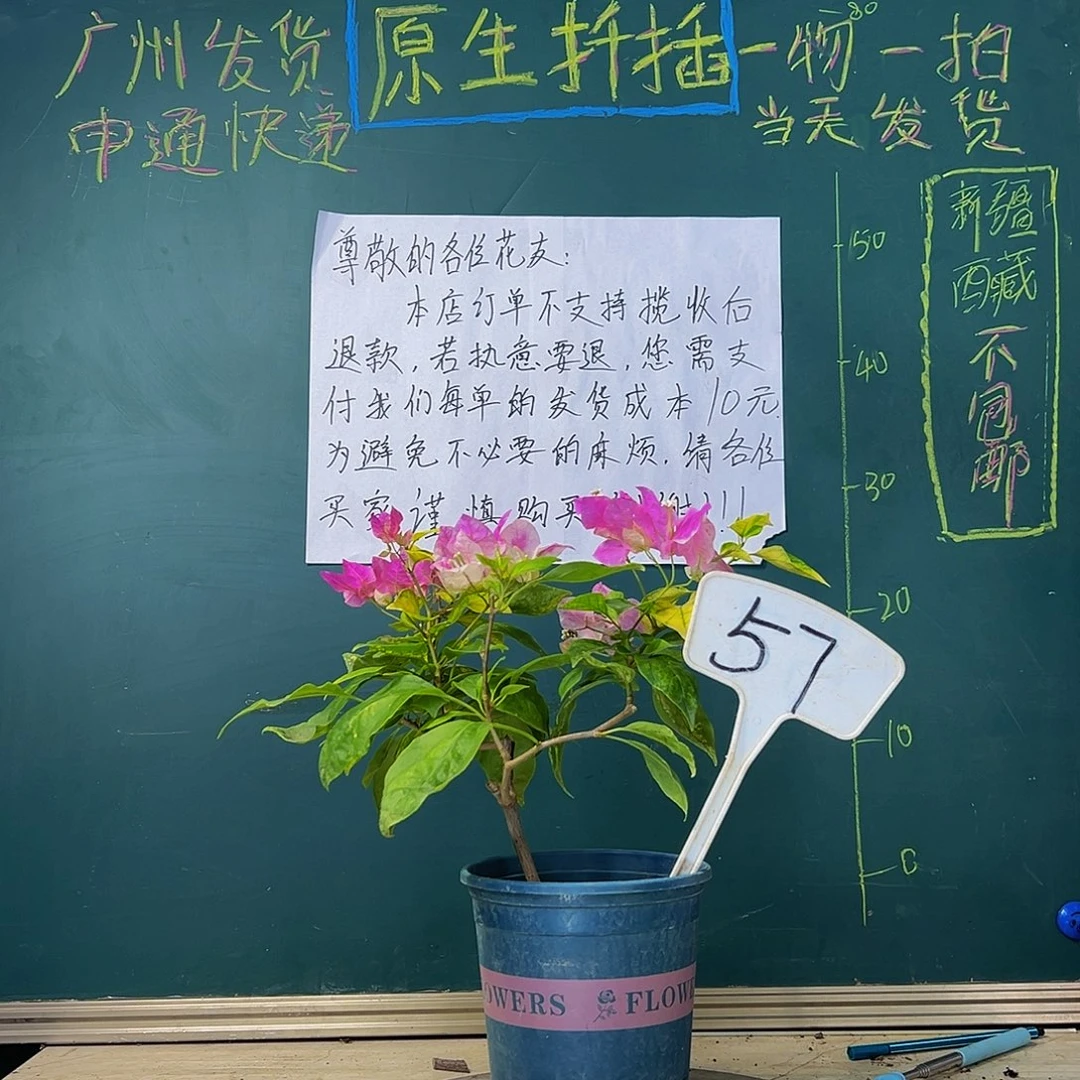 广州发货
申通快递
原生扦插
一物一拍
当天发货
80
50
40
30
20
10
0
新疆
西藏
不
包
邮
尊敬的各位花友:
本店订单不支持揽收后
退款,若执意要退,您需支
付我们每单的发货成本10元
为避免不必要的麻烦.请各位
买家谨慎购买!!!
57
OWERS FLOWE